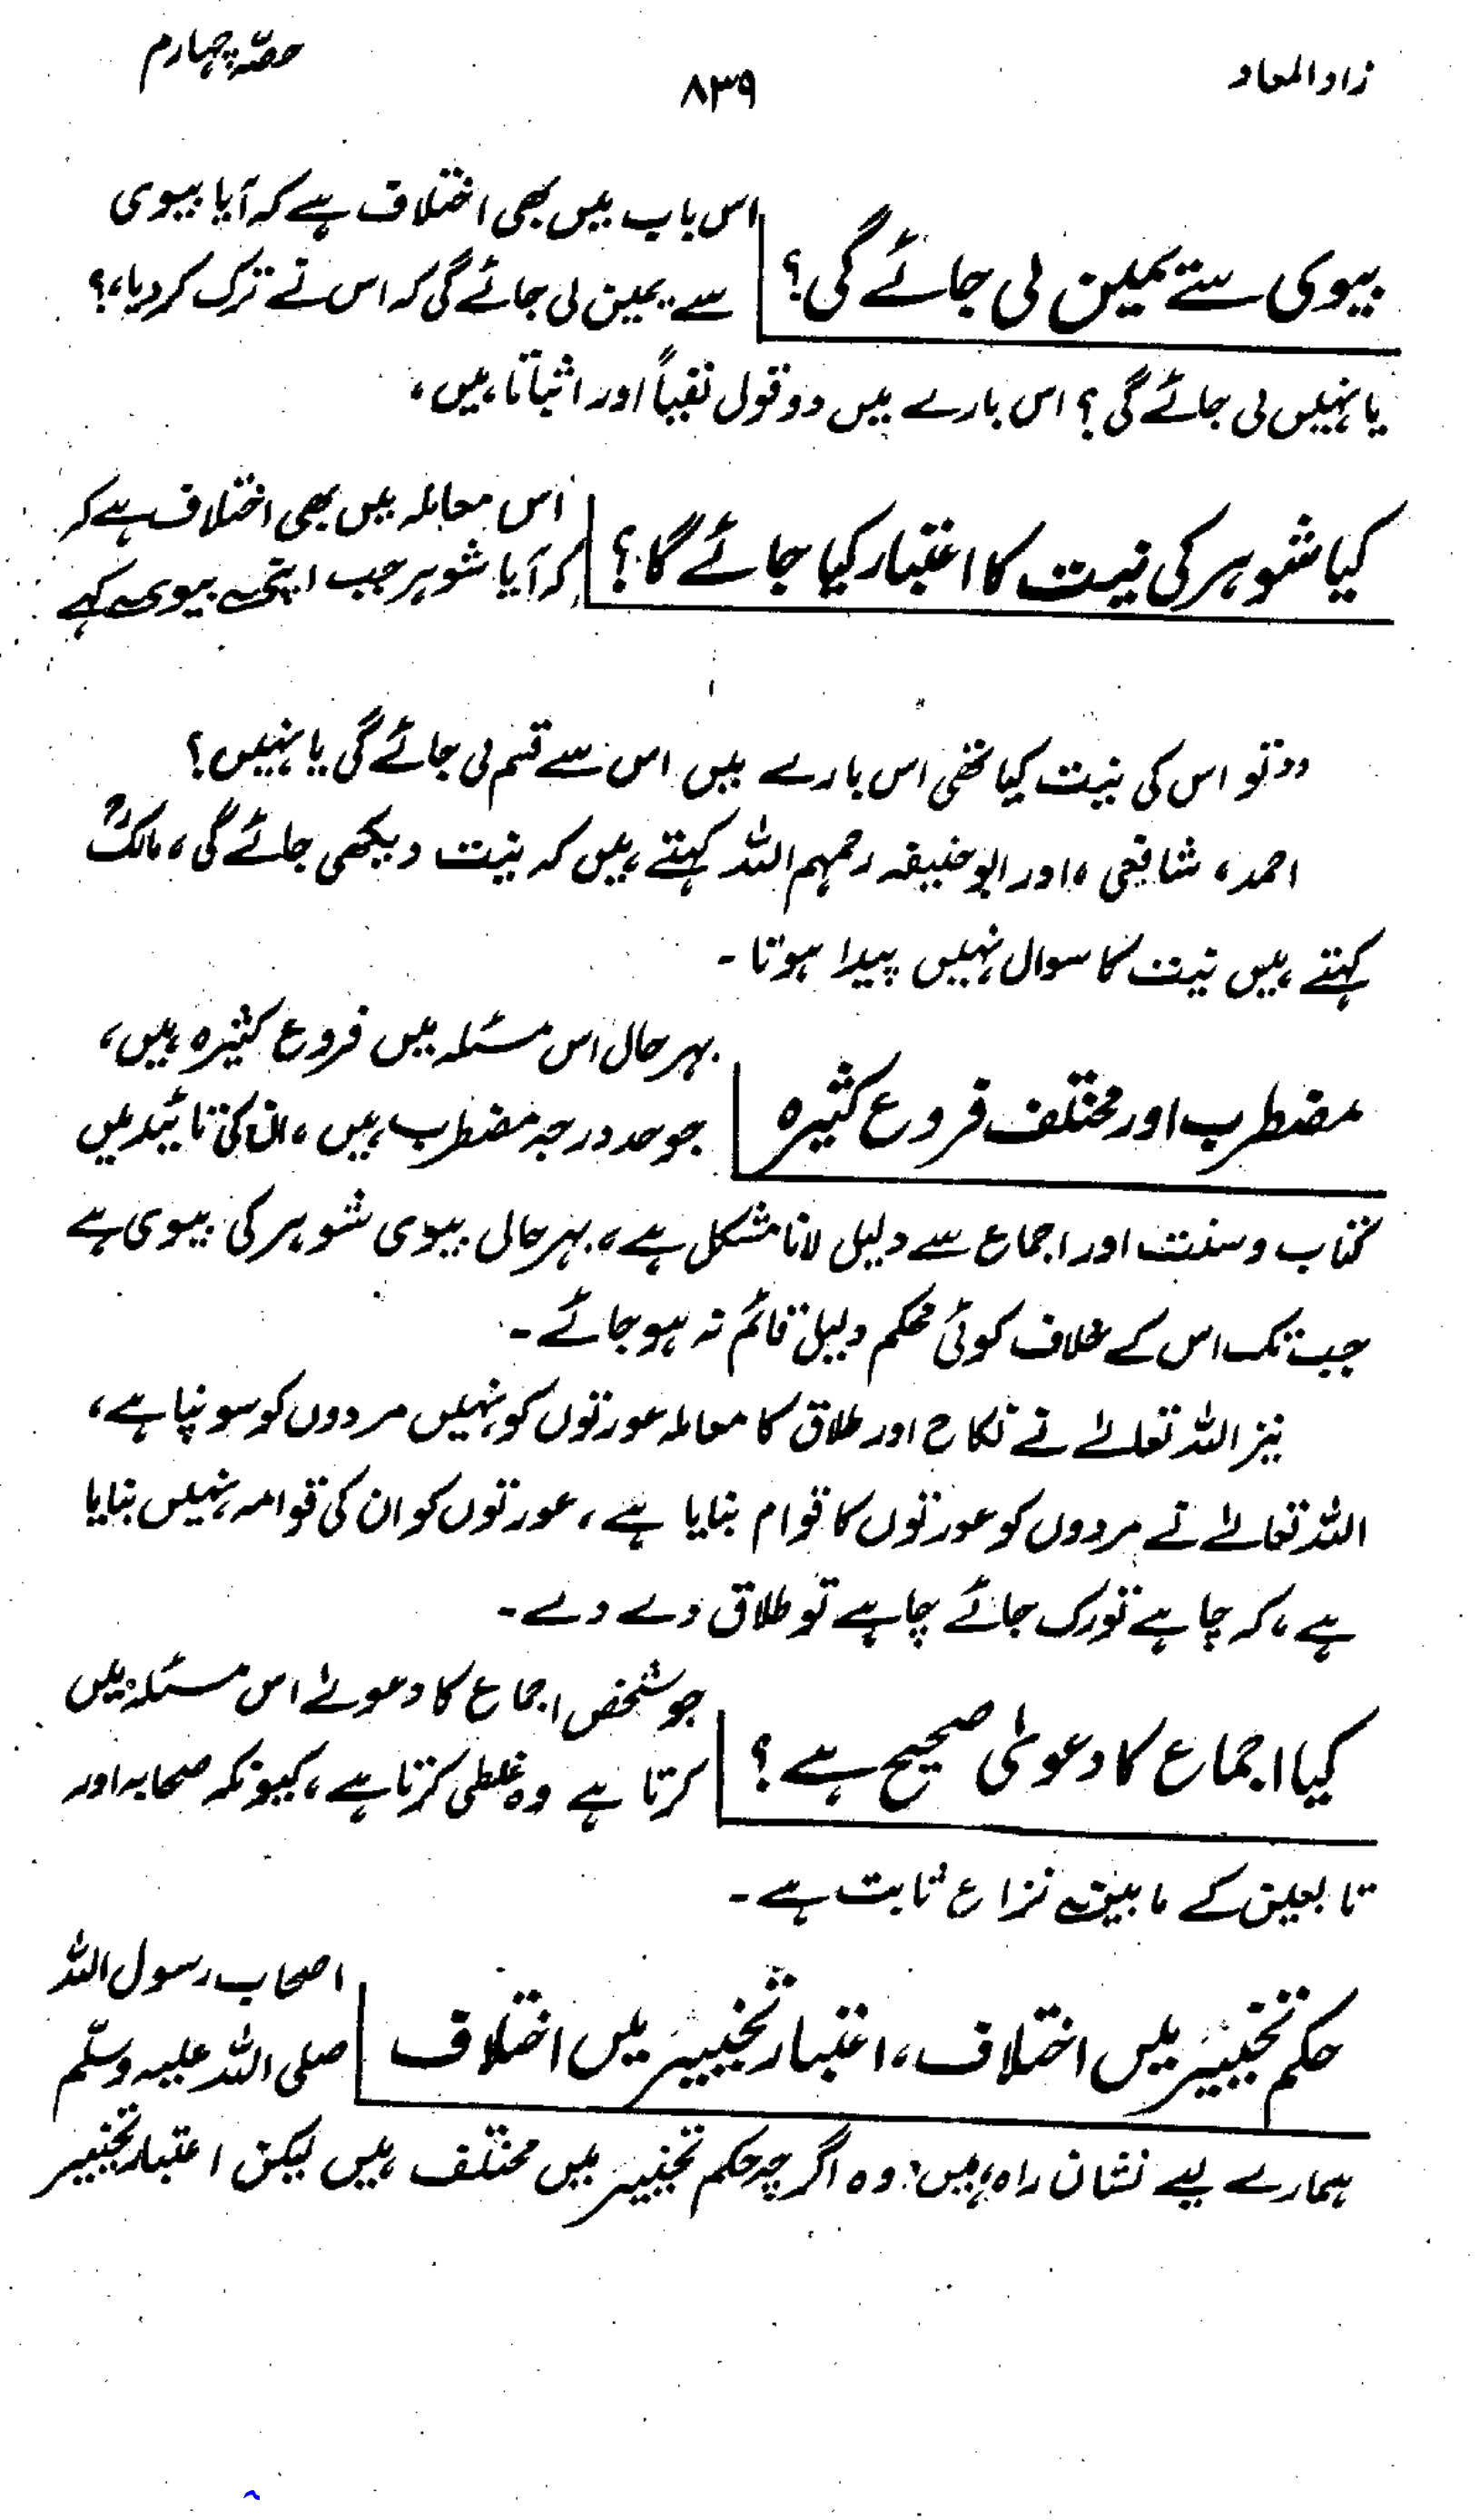 زاد المعاد ۸۳۹ حصّہ چہارم
بیوی سے یمین لی جائے گی؟
اس باب میں بھی اختلاف ہے کہ آیا بیوی
سے یمین لی جائے گی کہ اس نے ترک کر دیا،؟
یا نہیں لی جائے گی؟ اس بارے میں دو قول نفیاً اور اثباتاً ہیں،
کیا شوہر کی نیت کا اعتبار کیا جائے گا؟
اس معاملہ میں بھی اختلاف ہے کہ
کہ آیا شوہر جب اپنی بیوی کہے
دو تو اس کی نیت کیا تھی اس بارے میں اس سے قسم لی جائے گی یا نہیں؟
احمد، شافعی، اور ابو حنیفہ رحمہم اللہ کہتے ہیں کہ نیت دیکھی جائے گی، مالکؒ
کہتے ہیں نیت کا سوال نہیں پیدا ہوتا۔
مضطرب اور مختلف فروع کثیرہ
بہر حال اس مسئلہ میں فروع کثیرہ ہیں،
جو حد درجہ مضطرب ہیں، ان کی تائید میں
کتاب و سنت اور اجماع سے دلیل لانا مشکل ہے، بہر حال بیوی شوہر کی بیوی ہے
جب تک اس کے خلاف کوئی محکم دلیل قائم نہ ہو جائے۔
نیز اللہ تعالےٰ نے نکاح اور طلاق کا معاملہ عورتوں کو نہیں مردوں کو سونپا ہے،
اللہ تعالےٰ نے مردوں کو عورتوں کا قوام بنایا ہے، عورتوں کو ان کی قوامہ نہیں بنایا
ہے، کہ چاہے تو رک جائے چاہے تو طلاق دے دے۔
کیا اجماع کا دعویٰ صحیح ہے؟
جو شخص اجماع کا دعوےٰ اس مسئلہ میں
کرتا ہے وہ غلطی کرتا ہے، کیونکہ صحابہ اور
تابعین کے مابین نزاع ثابت ہے۔
حکم تخییر میں اختلاف، اعتبار تخییر میں اختلاف
اصحاب رسول اللہ
صلی اللہ علیہ وسلّم
ہمارے لیے نشان راہ ہیں، وہ اگرچہ حکم تخییر میں مختلف ہیں لیکن اعتبار تخییر